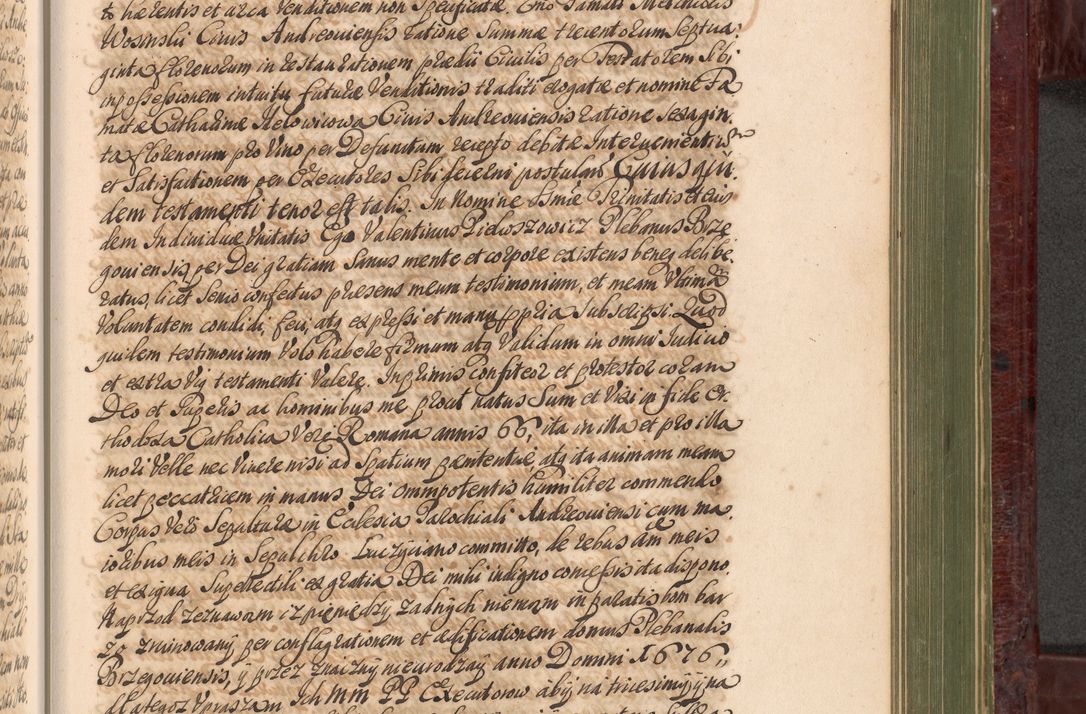 to haerentis et arca Venditionem non Specificatae.
Wosinslii Civis Andreoviensis ratione Summae trecentorum septua,
ginta florenorum in restaurationem praedii Civilis per Testatorem sibi
in possessionem intuitu futurae Venditionis traditi erogatae et nomine Fa
matae Catharinae Civis Andreoviensis ratione sexagin,
ta florenorum pro Vino per Defunctum recepto debitae
et Satisfactionem per Executores Sibi fieri postulavit Cuius qui,
dem testamenti tenor est talis. In Nomine SSmae Trinitatis et eius
dem Individuae Unitatis Ego Valentinus Piekoszowicz Plebanus Brze
goviensis per Dei gratiam Sanus mente et corpore existens bene delibe,
ratus, licet Senio confectus praesens meum testimonium, et meam Ultimam
Voluntatem condidi, feci, atq expressi et manu ppria Subscripsi. Quod
quidem testimonium Volo habere firmum atq Validum in omni Iudicio
et extra Vig testamenti Valere. Inprimis confiteor et protestor coram
Deo et Superis ac hominibus me prout natus Sum et Vixi in fide Or
thodoxa Catholica Vere Romana annis 66, ita in illa et pro illa
mori Velle nec Vivere nisi ad Spatium paenitentiae, atq ita animam meam
licet peccatricem in manus Dei Omnipotentis humiliter commendo
Corpus Vero Sepulturae in Ecclesia Parochiali Andreoviensi cum ma,
ioribus meis in Sepulchro committo, de rebus am meis
et exigua Supellectili ex gratia Dei mihi indigno concessis ita dispono.
Naprzod zeznawam isz pieniedzy zadnych niemam in paratis bom bar
zo zruinowany per conflagrationem et aedificationem domus Plebanalis
Brzegoviensis, y przez znaczny nieurodzay anno Domini 1676,,
dlategoz Upraszam Ich MM PP Executorow abÿ na tricesimÿ ÿ na